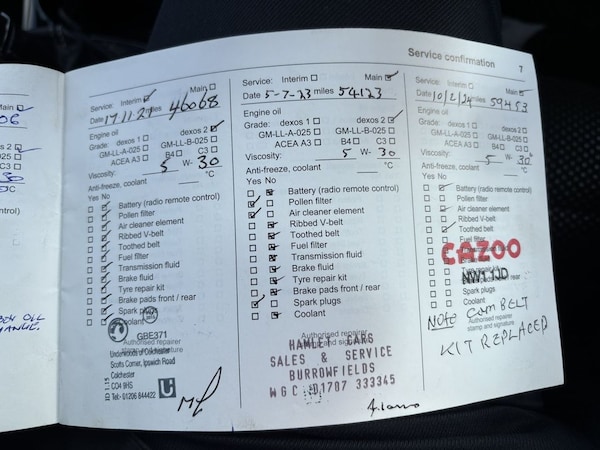 Service confirmation 7
Main
Service: Interim Main
Date 17.11.21 miles 46068
Engine oil
Grade: dexos 1 dexos 2
GM-LL-A-025 GM-LL-B-025
ACEA A3 B4 C3
Viscosity: 5 W- 30
Anti-freeze, coolant °C
Yes No
Battery (radio remote control)
Pollen filter
Air cleaner element
Ribbed V-belt
Toothed belt
Fuel filter
Transmission fluid
Brake fluid
Tyre repair kit
Brake pads front / rear
Spark plugs
Coolant
GBE371
Authorised repairer
stamp and signature
Underwoods of Colchester
Scotts Corner, Ipswich Road
Colchester
CO4 9HS
Tel: 01206 844422
Service: Interim Main
Date 5-7-23 miles 54123
Engine oil
Grade: dexos 1 dexos 2
GM-LL-A-025 GM-LL-B-025
ACEA A3 B4 C3
Viscosity: 5 W- 30
Anti-freeze, coolant °C
Yes No
Battery (radio remote control)
Pollen filter
Air cleaner element
Ribbed V-belt
Toothed belt
Fuel filter
Transmission fluid
Brake fluid
Tyre repair kit
Brake pads front / rear
Spark plugs
Coolant
Authorised repairer
HAMLET CARS
SALES & SERVICE
BURROWFIELDS
WGC 01707 333345
Service: Interim Main
Date 10/2/24 miles 59453
Engine oil
Grade: dexos 1 dexos 2
GM-LL-A-025 GM-LL-B-025
ACEA A3 B4 C3
Viscosity: 5 W- 30
Anti-freeze, coolant °C
Yes No
Battery (radio remote control)
Pollen filter
Air cleaner element
Ribbed V-belt
Toothed belt
Fuel filter
CAZOO
Tyre repair kit
NW1 1JD
Spark plugs
Coolant
Authorised repairer
stamp and signature
NOTE CAM BELT
KIT REPLACED